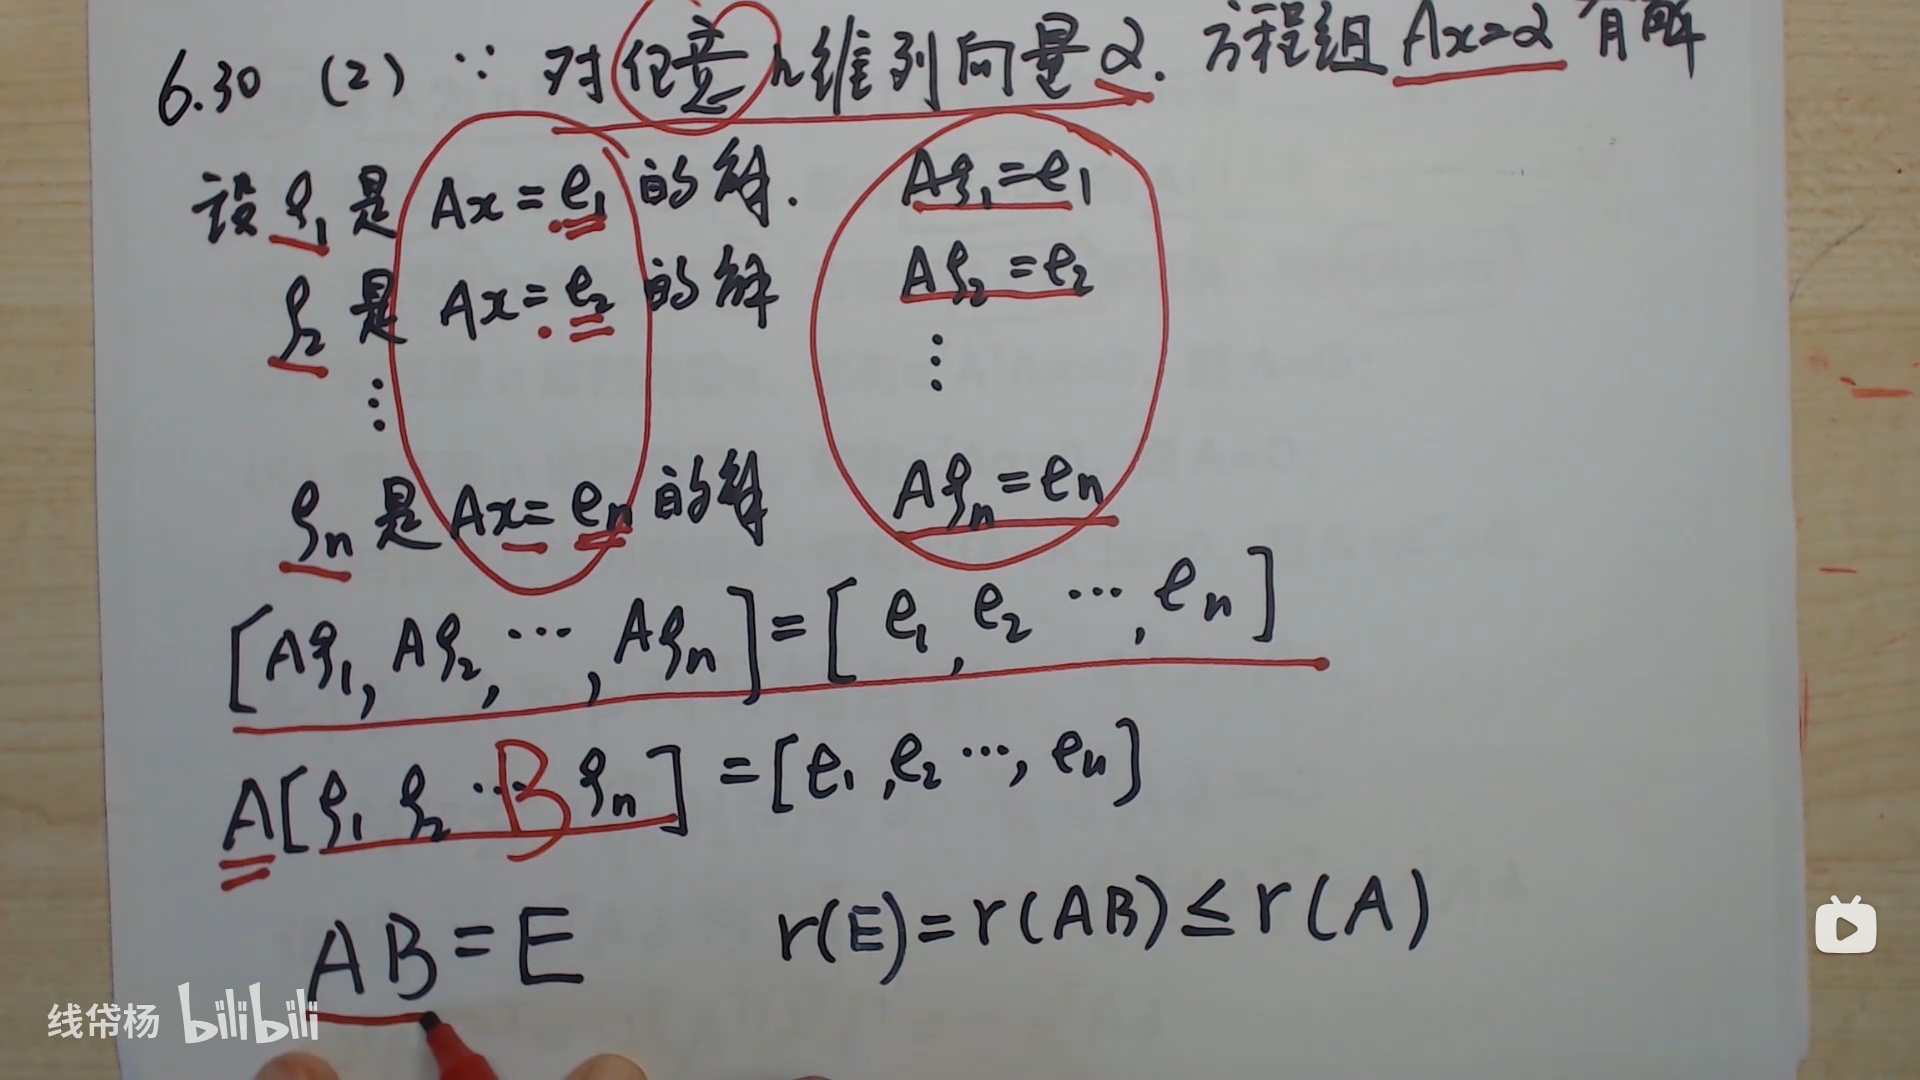 6.30 (2) ∵ 对任意n维列向量α. 方程组Ax=α 有解
设ξ₁是 Ax=e₁ 的解. Aξ₁=e₁
ξ₂是 Ax=e₂ 的解 Aξ₂=e₂
⋮ ⋮
ξn是 Ax=en 的解 Aξn=en
[Aξ₁, Aξ₂, ⋯, Aξn]=[e₁, e₂ ⋯, en]
A[ξ₁ ξ₂ ⋯ ξn]=[e₁, e₂ ⋯, en]
B
AB=E r(E)=r(AB)≤r(A)
线帒杨 bilibili